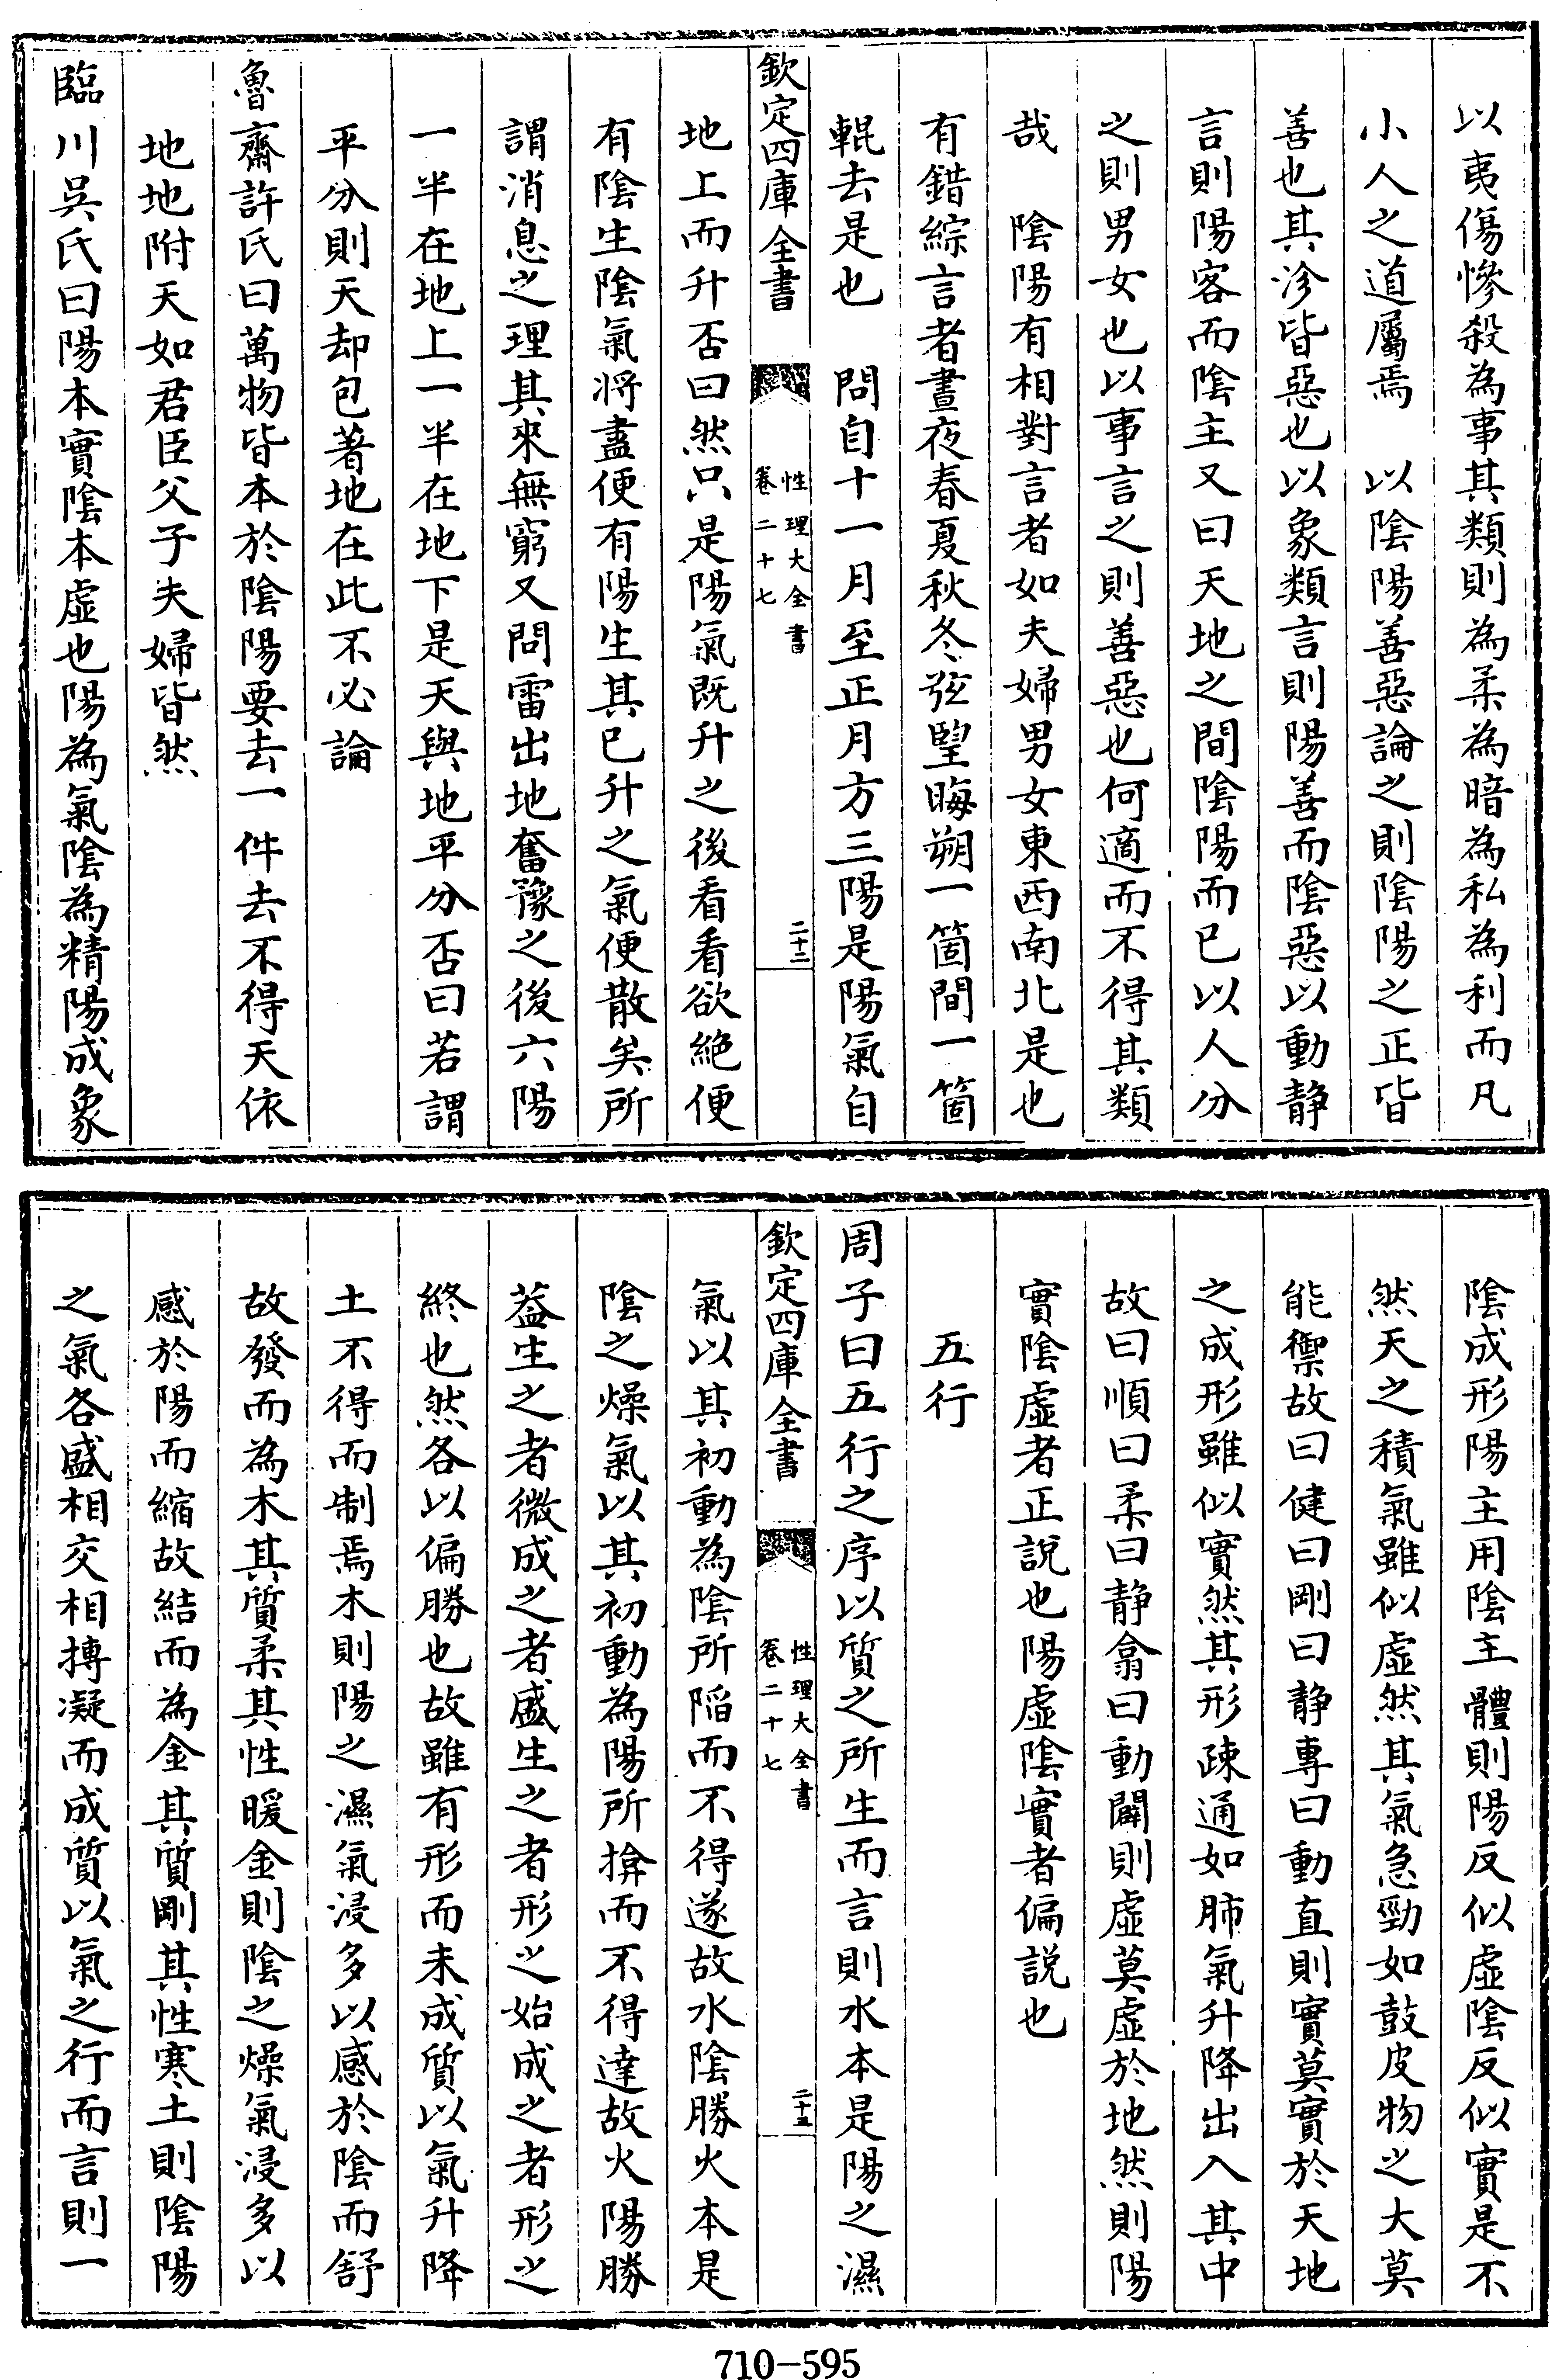 以夷傷慘殺為事其類則為柔為暗為私為利而凡
小人之道屬焉　以陰陽善惡論之則陰陽之正皆
善也其沴皆惡也以象類言則陽善而陰惡以動静
言則陽客而陰主又曰天地之間陰陽而已以人分
之則男女也以事言之則善惡也何適而不得其類
哉　陰陽有相對言者如夫婦男女東西南北是也
有錯綜言者晝夜春夏秋冬弦望晦朔一箇間一箇
輥去是也　問自十一月至正月方三陽是陽氣自
欽定四庫全書
性理大全書
卷二十七
二十二
地上而升否曰然只是陽氣既升之後看看欲絶便
有陰生陰氣将盡便有陽生其已升之氣便散矣所
謂消息之理其來無窮又問雷出地奮豫之後六陽
一半在地上一半在地下是天與地平分否曰若謂
平分則天却包著地在此不必論
魯齋許氏曰萬物皆本於陰陽要去一件去不得天依
地地附天如君臣父子夫婦皆然
臨川吳氏曰陽本實陰本虚也陽為氣陰為精陽成象
陰成形陽主用陰主體則陽反似虚陰反似實是不
然天之積氣雖似虚然其氣急勁如鼓皮物之大莫
能禦故曰健曰剛曰静專曰動直則實莫實於天地
之成形雖似實然其形疎通如肺氣升降出入其中
故曰順曰柔曰静翕曰動闢則虚莫虚於地然則陽
實陰虚者正説也陽虚陰實者偏説也
五行
周子曰五行之序以質之所生而言則水本是陽之濕
欽定四庫全書
性理大全書
卷二十七
二十三
氣以其初動為陰所陷而不得遂故水陰勝火本是
陰之燥氣以其初動為陽所揜而不得達故火陽勝
葢生之者微成之者盛生之者形之始成之者形之
終也然各以偏勝也故雖有形而未成質以氣升降
土不得而制焉木則陽之濕氣浸多以感於陰而舒
故發而為木其質柔其性暖金則陰之燥氣浸多以
感於陽而縮故結而為金其質剛其性寒土則陰陽
之氣各盛相交相摶凝而成質以氣之行而言則一
710-595